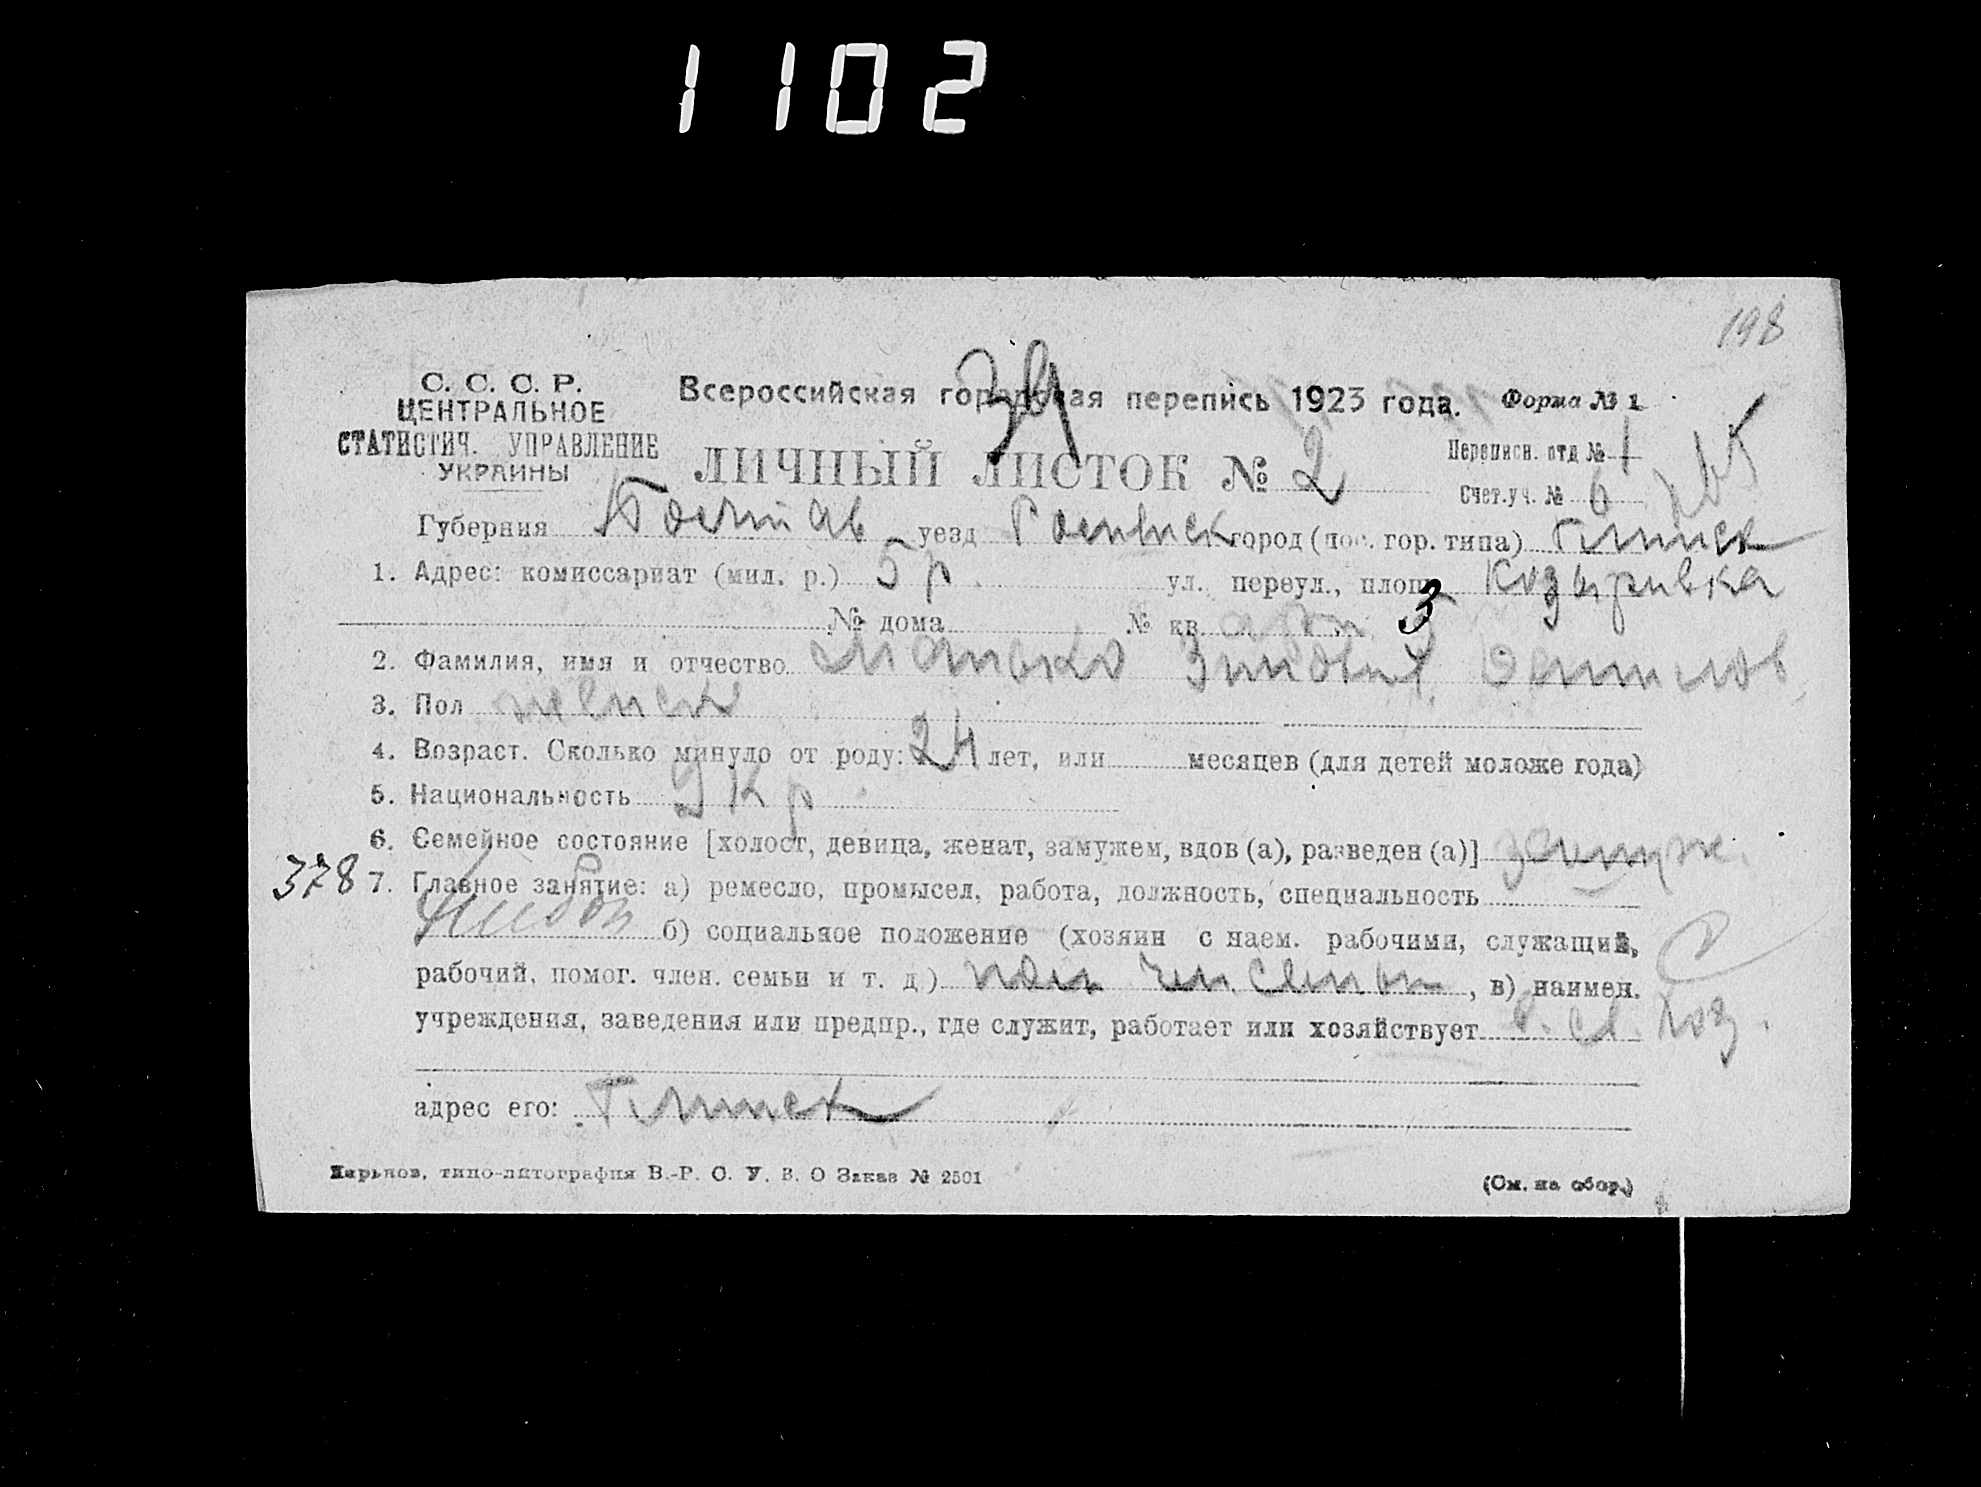 1102
198
С. С. С. Р.
ЦЕНТРАЛЬНОЕ
СТАТИСТИЧ. УПРАВЛЕНИЕ
УКРАИНЫ
Всероссийская городская перепись 1923 года. Форма № 1
ЛИЧНЫЙ ЛИСТОК № 2
Переписн. отд № 1
Счет.уч. № 6
Губерния Полтав уезд город (пос. гор. типа) Глинск
1. Адрес: комиссариат (мил. р.) 5 р. ул. переул., площ. Козыривка
№ дома № кв 3
2. Фамилия, имя и отчество Данилов
3. Пол женск
4. Возраст. Сколько минуло от роду: 24 лет, или месяцев (для детей моложе года)
5. Национальность Укр.
6. Семейное состояние [холост, девица, женат, замужем, вдов (а), разведен (а)] замуж.
378 7. Главное занятие: а) ремесло, промысел, работа, должность, специальность
хлебор б) социальное положение (хозяин с наем. рабочими, служащий,
рабочий, помог. член. семьи и т. д.) пом чл. семьи, в) наимен.
учреждения, заведения или предпр., где служит, работает или хозяйствует в с. хоз.
адрес его: Глинск
Харьков, типо-литография В.-Р. О. У. В. О Заказ № 2501
(См. на обор.)